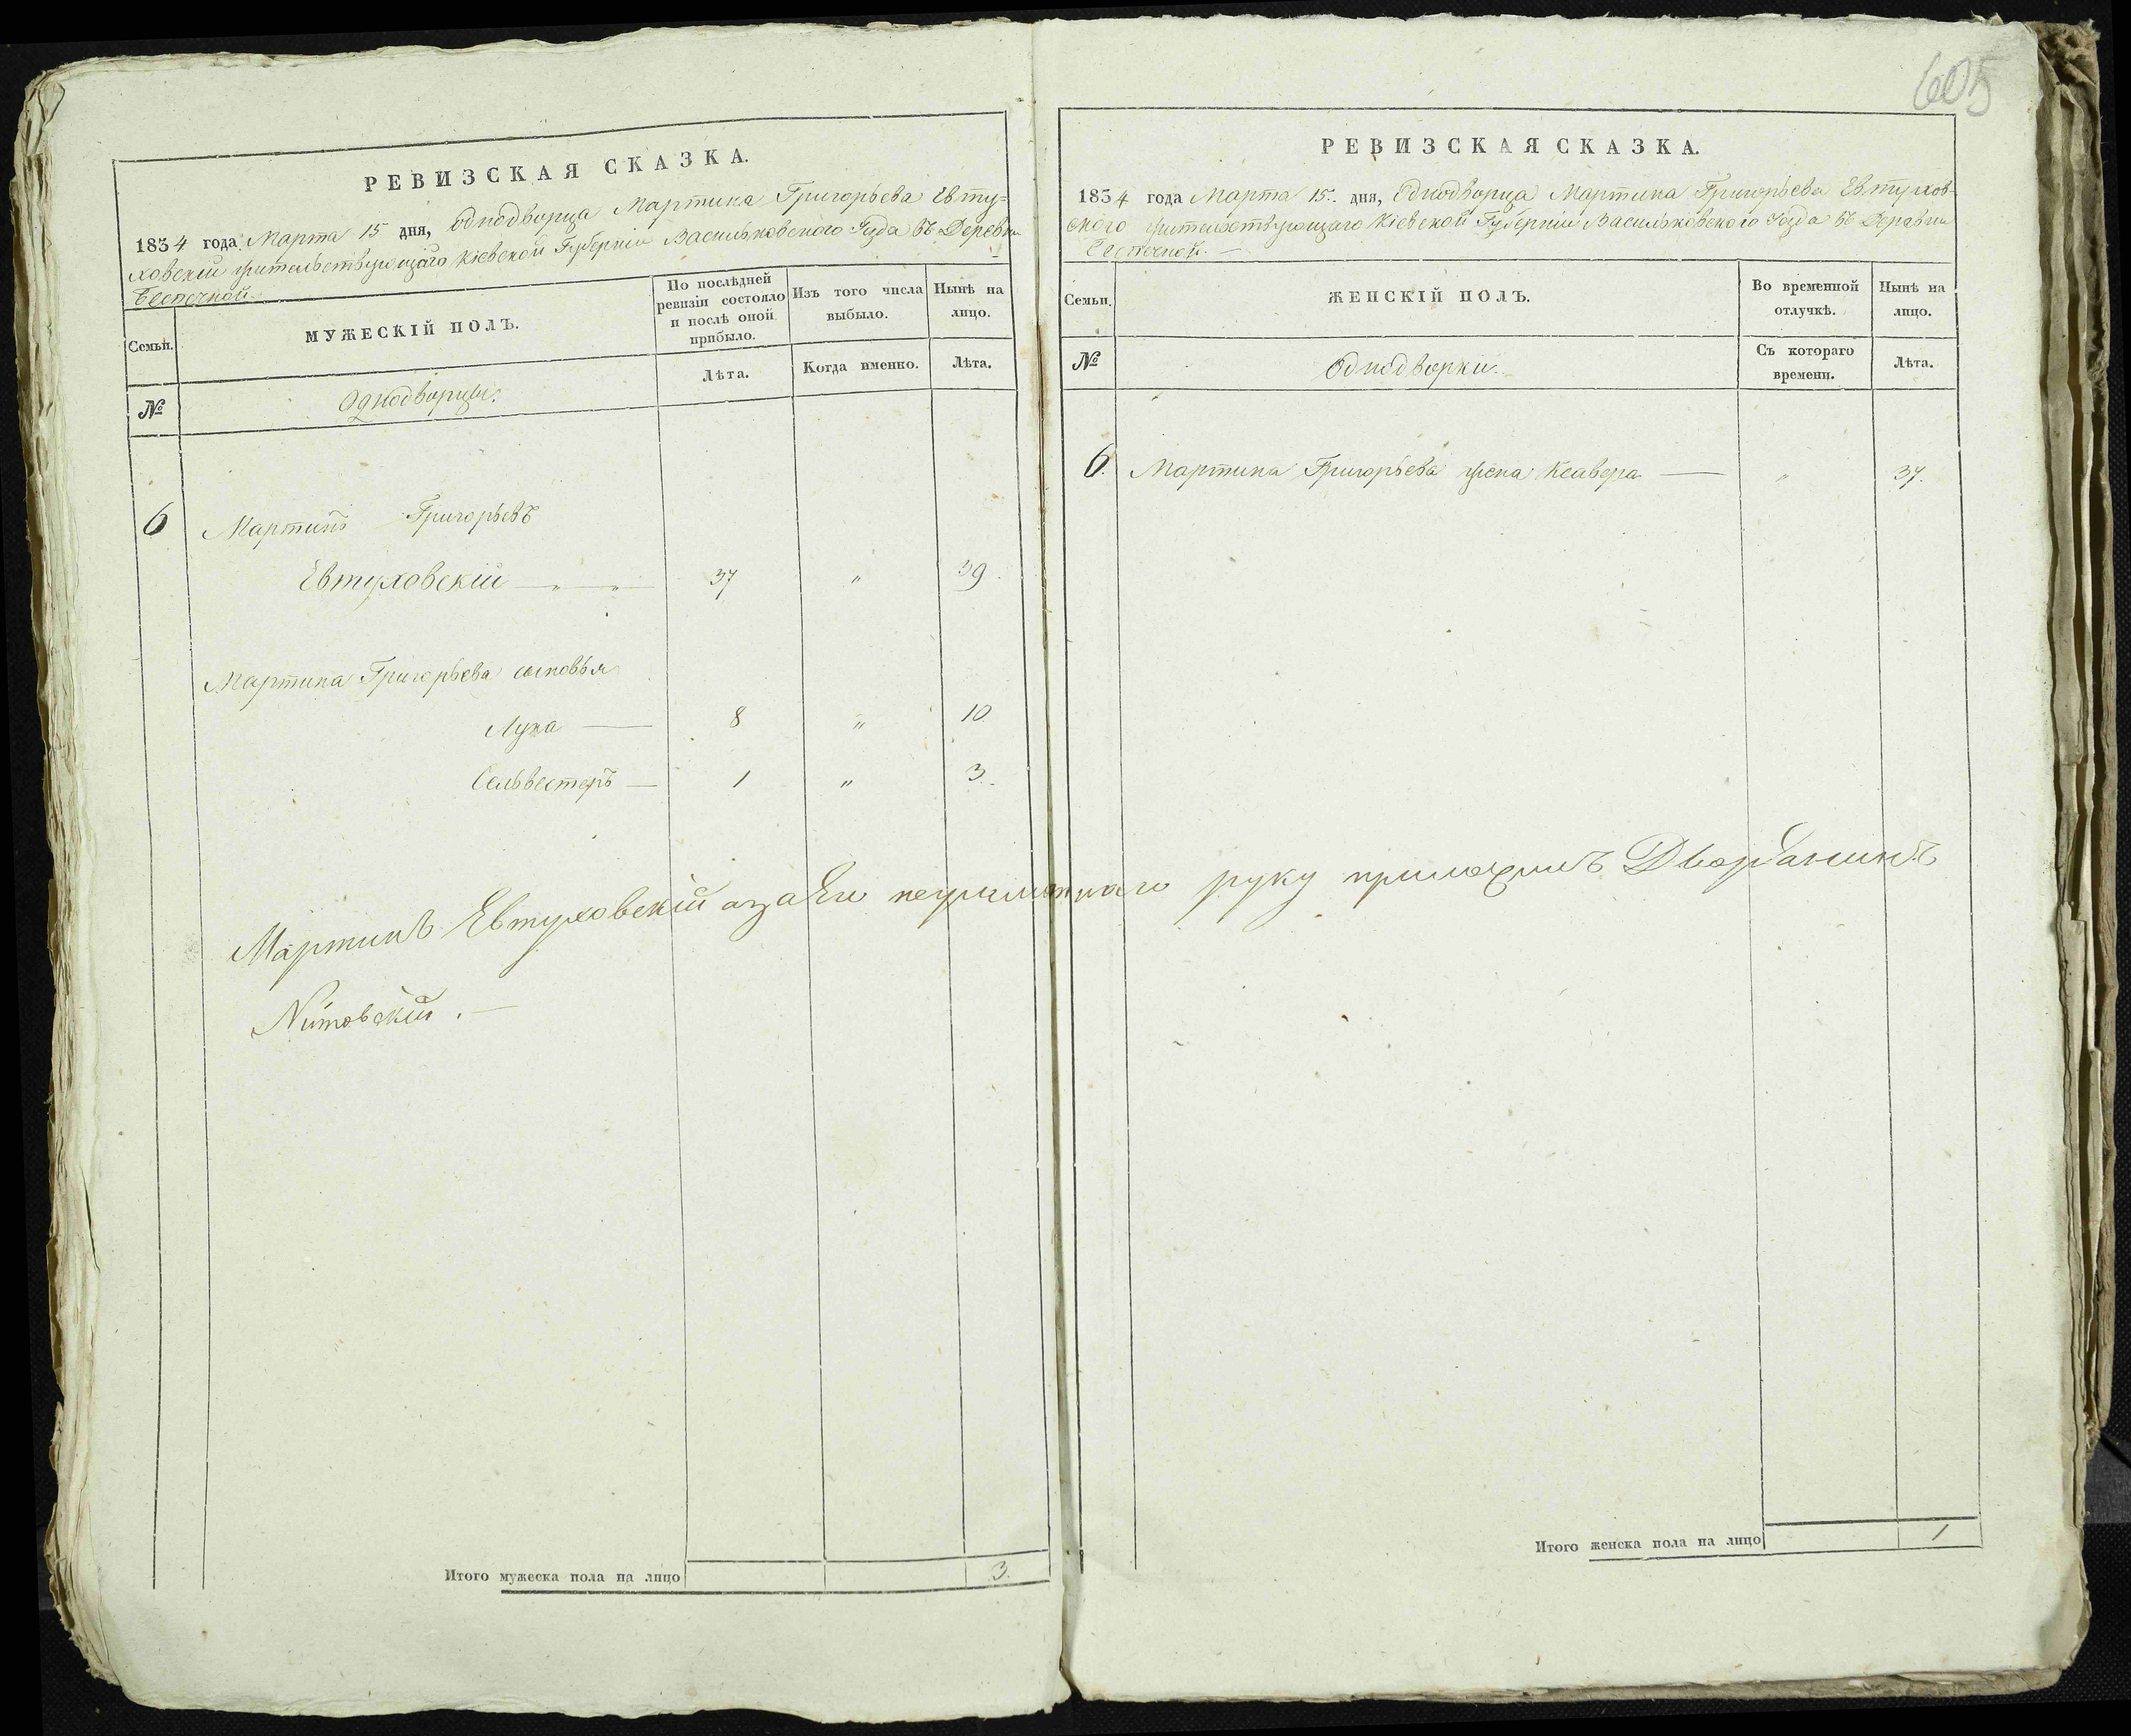 605
РЕВИЗСКАЯ СКАЗКА.
1834 года Марта 15 дня, Однодворца Мартина Григорьева Евту=
ховскій жительствующаго Кіевской Губерніи Васильковского Уезда въ Деревни
Беспечной.
Семьи.
МУЖЕСКІЙ ПОЛЪ.
По послѣдней
ревизіи состояло
и послѣ оной
прибыло.
Изъ того числа
выбыло.
Нынѣ на
лицо.
Лѣта.
Когда именно.
Лѣта.
№
Однодворцы.
6 Мартинъ Григорьевъ
Евтуховскій — „ — „ 37 „ 39.
Мартина Григорьева сыновья
Лука — 8 „ 10
Сельвестеръ — 1 „ 3.
Итого мужеска пола на лицо 3.
РЕВИЗСКАЯ СКАЗКА.
1834 года Марта 15. дня, Однодворца Мартина Григорьева Евтухов-
ского жительствующаго Кіевской Губерніи Васильковского Уезда въ Деревни
Беспечной. —
Семьи.
ЖЕНСКІЙ ПОЛЪ.
Во временной
отлучкѣ.
Нынѣ на
лицо.
№
Однодворки.
Съ котораго
времени.
Лѣта.
6. Мартина Григорьева жена Ксавера — „ 37.
Мартинъ Евтуховскій а за Его неграмотнаго руку приложилъ Дворанинъ
. —
Итого женска пола на лицо 1